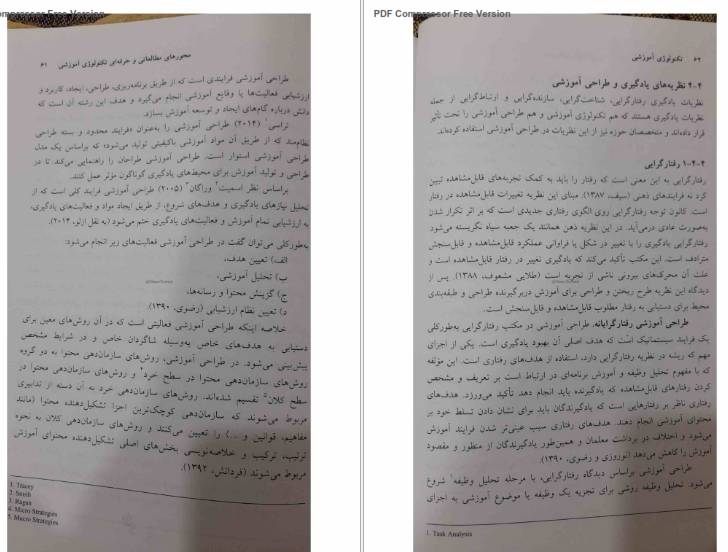 PDF Compressor Free Version
محورهای مطالعاتی و حرفه‌ای تکنولوژی آموزشی ۶۱
طراحی آموزشی فرایندی است که از طریق برنامه‌ریزی، طراحی، ایجاد، کاربرد و
ارزشیابی فعالیت‌ها یا وقایع آموزشی انجام می‌گیرد و هدف این رشته آن است که
دانش درباره گام‌های ایجاد و توسعه آموزش بسازد.
تراسی¹ (۲۰۱۴) طراحی آموزشی را به‌عنوان «فرایند محدود و بسته طراحی
نظام‌مند که از طریق آن مواد آموزشی باکیفیتی تولید می‌شود» که براساس یک مدل
طراحی آموزشی استوار است. طراحی آموزشی طراحان را راهنمایی می‌کند تا در
طراحی و تولید آموزش برای محیط‌های یادگیری گوناگون مؤثر عمل کنند.
براساس نظر اسمیت² وراگان³ (۲۰۰۵) طراحی آموزشی فرایند کلی است که از
تحلیل نیازهای یادگیری و هدف‌های شروع، از طریق ایجاد مواد و فعالیت‌های یادگیری،
به ارزشیابی تمام آموزش و فعالیت‌های یادگیری ختم می‌شود (به نقل ازلو، ۲۰۱۴).
به‌طورکلی می‌توان گفت در طراحی آموزشی فعالیت‌های زیر انجام می‌شود:
الف) تعیین هدف،
ب) تحلیل آموزشی،
ج) گزینش محتوا و رسانه‌ها،
د) تعیین نظام ارزشیابی (رضوی، ۱۳۹۰)
خلاصه اینکه طراحی آموزشی فعالیتی است که در آن روش‌های معین برای
دستیابی به هدف‌های خاص به‌وسیله شاگردان خاص و در شرایط مشخص
پیش‌بینی می‌شود. در طراحی آموزشی، روش‌های سازمان‌دهی محتوا به دو گروه
روش‌های سازمان‌دهی محتوا در سطح خرد⁴ و روش‌های سازمان‌دهی محتوا در
سطح کلان⁵ تقسیم شده‌اند. روش‌های سازمان‌دهی خرد به آن دسته از تدابیری
مربوط می‌شوند که سازمان‌دهی کوچک‌ترین اجزا تشکیل‌دهنده محتوا (مانند
مفاهیم، قوانین و ...) را تعیین می‌کنند و روش‌های سازمان‌دهی کلان به نحوه
ترتیب، ترکیب و خلاصه‌نویسی بخش‌های اصلی تشکیل‌دهنده محتوای آموزش
مربوط می‌شوند (فردانش، ۱۳۹۲).
1. Tracey
2. Smith
3. Ragan
4. Micro Strategies
5. Macro Strategies
PDF Compressor Free Version
۶۲ تکنولوژی آموزشی
۴-۲ نظریه‌های یادگیری و طراحی آموزشی
نظریات یادگیری رفتارگرایی، شناخت‌گرایی، سازنده‌گرایی و ارتباط‌گرایی از جمله
نظریات یادگیری هستند که هم تکنولوژی آموزشی و هم طراحی آموزشی را تحت تأثیر
قرار داده‌اند و متخصصان حوزه نیز از این نظریات در طراحی آموزشی استفاده کرده‌اند.
۴-۲-۱ رفتارگرایی
رفتارگرایی به این معنی است که رفتار را باید به کمک تجربه‌های قابل‌مشاهده تبیین
کرد نه فرایندهای ذهنی (سیف، ۱۳۸۷). مبنای این نظریه تغییرات قابل‌مشاهده در رفتار
است. کانون توجه رفتارگرایی روی الگوی رفتاری جدیدی است که بر اثر تکرار شدن
به‌صورت عادی درمی‌آید. در این نظریه ذهن همانند یک جعبه سیاه نگریسته می‌شود
رفتارگرایی یادگیری را با تغییر در شکل یا فراوانی عملکرد قابل‌مشاهده و قابل‌سنجش
مترادف است. این مکتب تأکید می‌کند که یادگیری تغییر در رفتار قابل‌مشاهده است و
علت آن محرک‌های بیرونی ناشی از تجربه است (طلایی مشعوف، ۱۳۸۸). پس از
دیدگاه این نظریه طرح ریختن و طراحی برای آموزش دربرگیرنده طراحی و طبقه‌بندی
محیط برای دستیابی به رفتار مطلوب قابل‌مشاهده و قابل‌سنجش است.
طراحی آموزشی رفتارگرایانه. طراحی آموزشی در مکتب رفتارگرایی به‌طورکلی
یک فرایند سیستماتیک است که هدف اصلی آن بهبود یادگیری است. یکی از اجزای
مهم که ریشه در نظریه رفتارگرایی دارد، استفاده از هدف‌های رفتاری است. این مؤلفه
که با مفهوم تحلیل وظیفه و آموزش برنامه‌ای در ارتباط است بر تعریف و مشخص
کردن رفتارهای قابل‌مشاهده که یادگیرنده باید انجام دهد تأکید می‌ورزد. هدف‌های
رفتاری ناظر بر رفتارهایی است که یادگیرندگان باید برای نشان دادن تسلط خود بر
محتوای آموزشی انجام دهند. هدف‌های رفتاری سبب عینی‌تر شدن فرایند آموزش
می‌شود و اختلاف در برداشت معلمان و همین‌طور یادگیرندگان از منظور و مقصود
آموزش را کاهش می‌دهد (نوروزی و رضوی، ۱۳۹۰).
طراحی آموزشی براساس دیدگاه رفتارگرایی، با مرحله تحلیل وظیفه¹ شروع
می‌شود. تحلیل وظیفه روشی برای تجزیه یک وظیفه یا موضوع آموزشی به اجزای
1. Task Analysis